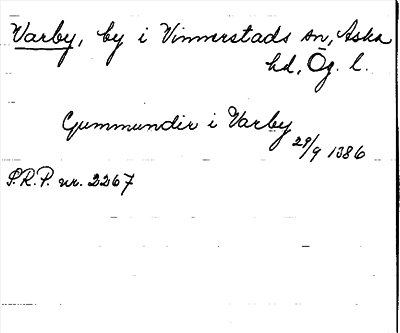 Varby, by i Vinnerstads sn, Aska
hd, Ög. l.
Gummundir i Varby
29/9 1386
S.R.P. nr. 2267